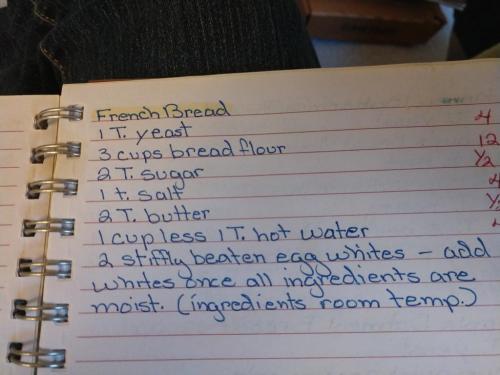 French Bread
1 T. yeast 4
3 cups bread flour 12
2 T. sugar 1/2
1 t. salt 4
2 T. butter 1/2
1 cup less 1 T. hot water
2 stiffly beaten egg whites - add
whites once all ingredients are
moist. (ingredients room temp.)